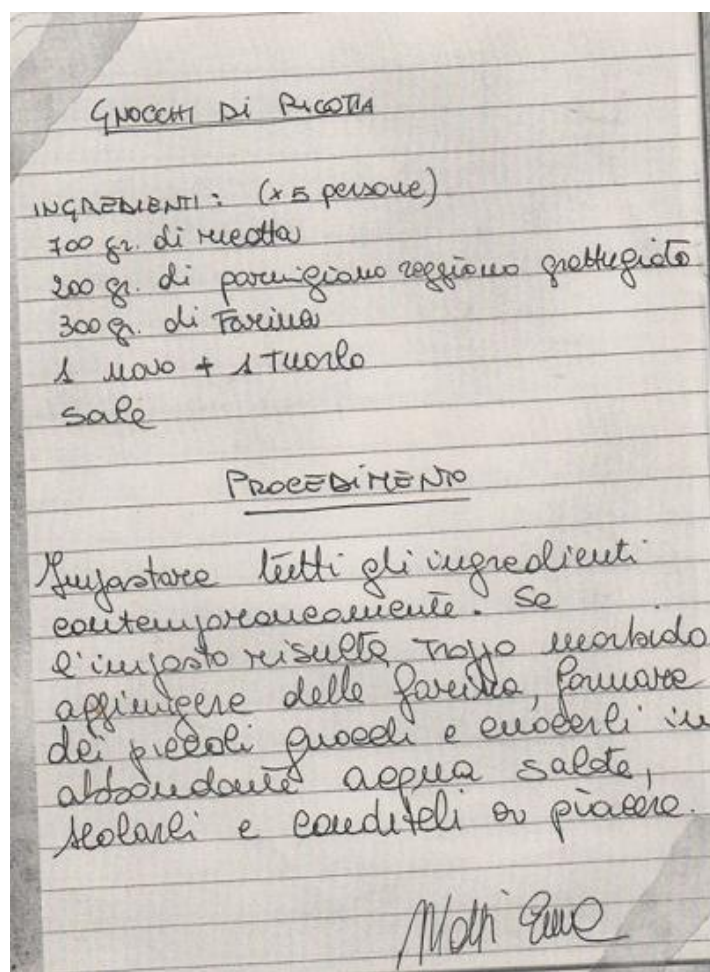 GNOCCHI Di RICOTTA
INGREDIENTI: (x 5 persone)
700 gr. di ricotta
200 gr. di parmigiano reggiano grattugiato
300 gr. di Farina
1 uovo + 1 Tuorlo
sale
PROCEDIMENTO
Impastare tutti gli ingredienti
contemporaneamente. Se
l'impasto risulta troppo morbido
aggiungere della farina, formare
dei piccoli gnocchi e cuocerli in
abbondante acqua salata,
scolarli e conditeli a piacere.